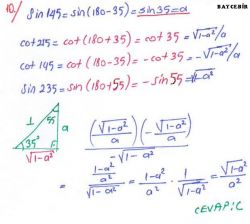 BAYCEBİR
10.) Sin 145 = sin(180-35) = sin 35 = a
cot 215 = cot (180+35) = cot 35 = √1-a²/a
cot 145 = cot (180-35) = -cot 35 = -√1-a²/a
Sin 235 = sin (180+55) = -sin 55 = √1-a²
1 55 a
35°
√1-a²
(√1-a²/a)(-√1-a²/a)
-√1-a²
= 1-a²/a² / √1-a² = 1-a²/a² · 1/√1-a² = √1-a²/a²
CEVAP: C